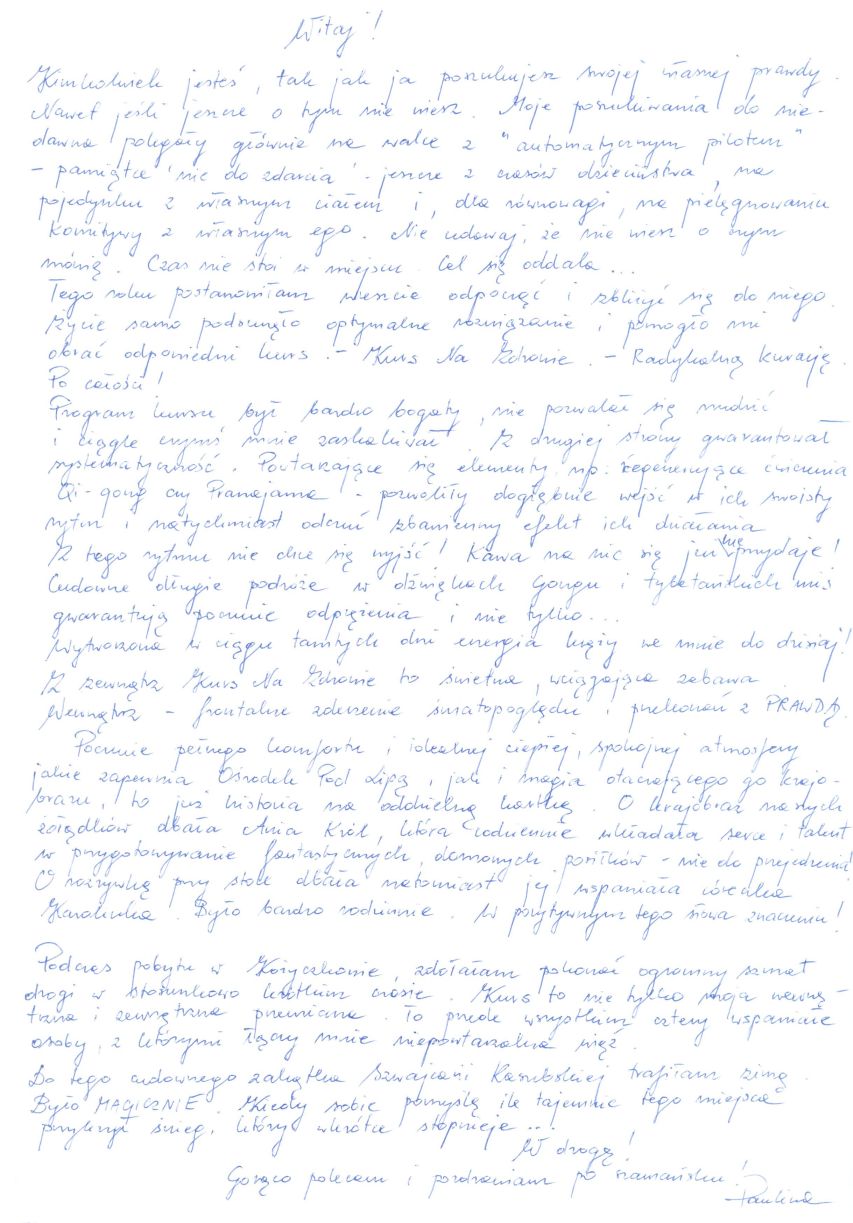 Witaj!
Kimkolwiek jesteś, tak jak ja poszukujesz swojej własnej prawdy.
Nawet jeśli jeszcze o tym nie wiesz. Moje poszukiwania do nie-
dawna polegały głównie na walce z "automatycznym pilotem"
- pamiątce 'nie do zdarcia' - jeszcze z czasów dzieciństwa, na
pojedynku z własnym ciałem i, dla równowagi, na pielęgnowaniu
komitywy z własnym ego. Nie udawaj, że nie wiesz o czym
mówię. Czas nie stoi w miejscu. Cel się oddala...
Tego roku postanowiłam wreszcie odpocząć i zbliżyć się do niego.
Życie samo podsunęło optymalne rozwiązanie i pomogło mi
obrać odpowiedni kurs. - Kurs Na Zdrowie. - Radykalną kurację.
Po całości!
Program kursu był bardzo bogaty, nie pozwalał się nudzić
i ciągle czymś mnie zaskakiwał. Z drugiej strony gwarantował
systematyczność. Powtarzające się elementy np. regenerujące ćwiczenia
Qi-gong czy Pranajama - pozwoliły dogłębnie wejść w ich swoisty
rytm i natychmiast odczuć zbawienny efekt ich działania
Z tego rytmu nie chce się wyjść! Kawa na nic się już nie przydaje!
Cudowne długie podróże w dźwiękach Gongu i tybetańskich mis
gwarantują poczucie odprężenia i nie tylko...
Wytworzona w ciągu tamtych dni energia krąży we mnie do dzisiaj!
Z zewnątrz Kurs Na Zdrowie to świetna, wciągająca zabawa.
Wewnątrz - frontalne zderzenie światopoglądu i przekonań z PRAWDĄ.
Poczucie pełnego komfortu i idealnej ciepłej, spokojnej atmosfery
jakie zapewnia Ośrodek Pod Lipą, jak i magia otaczającego go krajo-
brazu, to już historia na oddzielną kartkę. O krajobraz naszych
żołądków, dbała Ania Król, która codziennie wkładała serce i talent
w przygotowywanie fantastycznych, domowych posiłków - nie do przejedzenia!
O rozrywkę przy stole dbała natomiast jej wspaniała córeczka
Karolinka. Było bardzo rodzinnie. W pozytywnym tego słowa znaczeniu!
Podczas pobytu w, zdołałam pokonać ogromny szmat
drogi w stosunkowo krótkim czasie. Kurs to nie tylko moja wewnę-
trzna i zewnętrzna przemiana. To przede wszystkim cztery wspaniałe
osoby, z którymi łączy mnie niepowtarzalna więź.
Do tego cudownego zakątka Szwajcarii Kaszubskiej trafiłam zimą.
Było MAGICZNIE. Kiedy sobie pomyślę ile tajemnic tego miejsca
przykrył śnieg, który wkrótce stopnieje...
W drogę!
Gorąco polecam i pozdrawiam po szamańsku!
Paulina